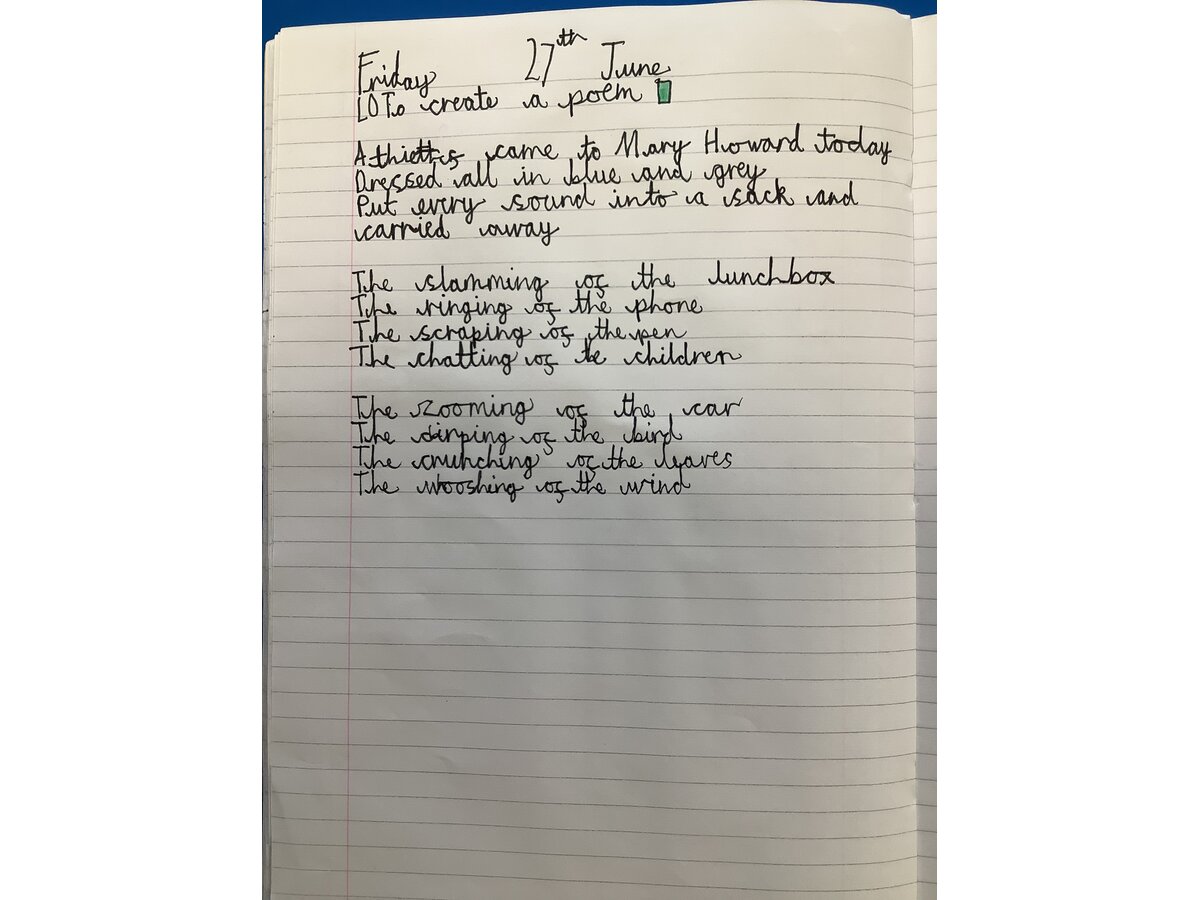 Friday 27th June
LO To create a poem
came to Mary Howard today
Dressed all in blue and grey
Put every sound into a sack and
carried away
The slamming of the lunchbox
The ringing of the phone
The scraping of the pen
The chatting of te children
The zooming of the car
The of the bird
The crunching of the leaves
The wooshing of the wind